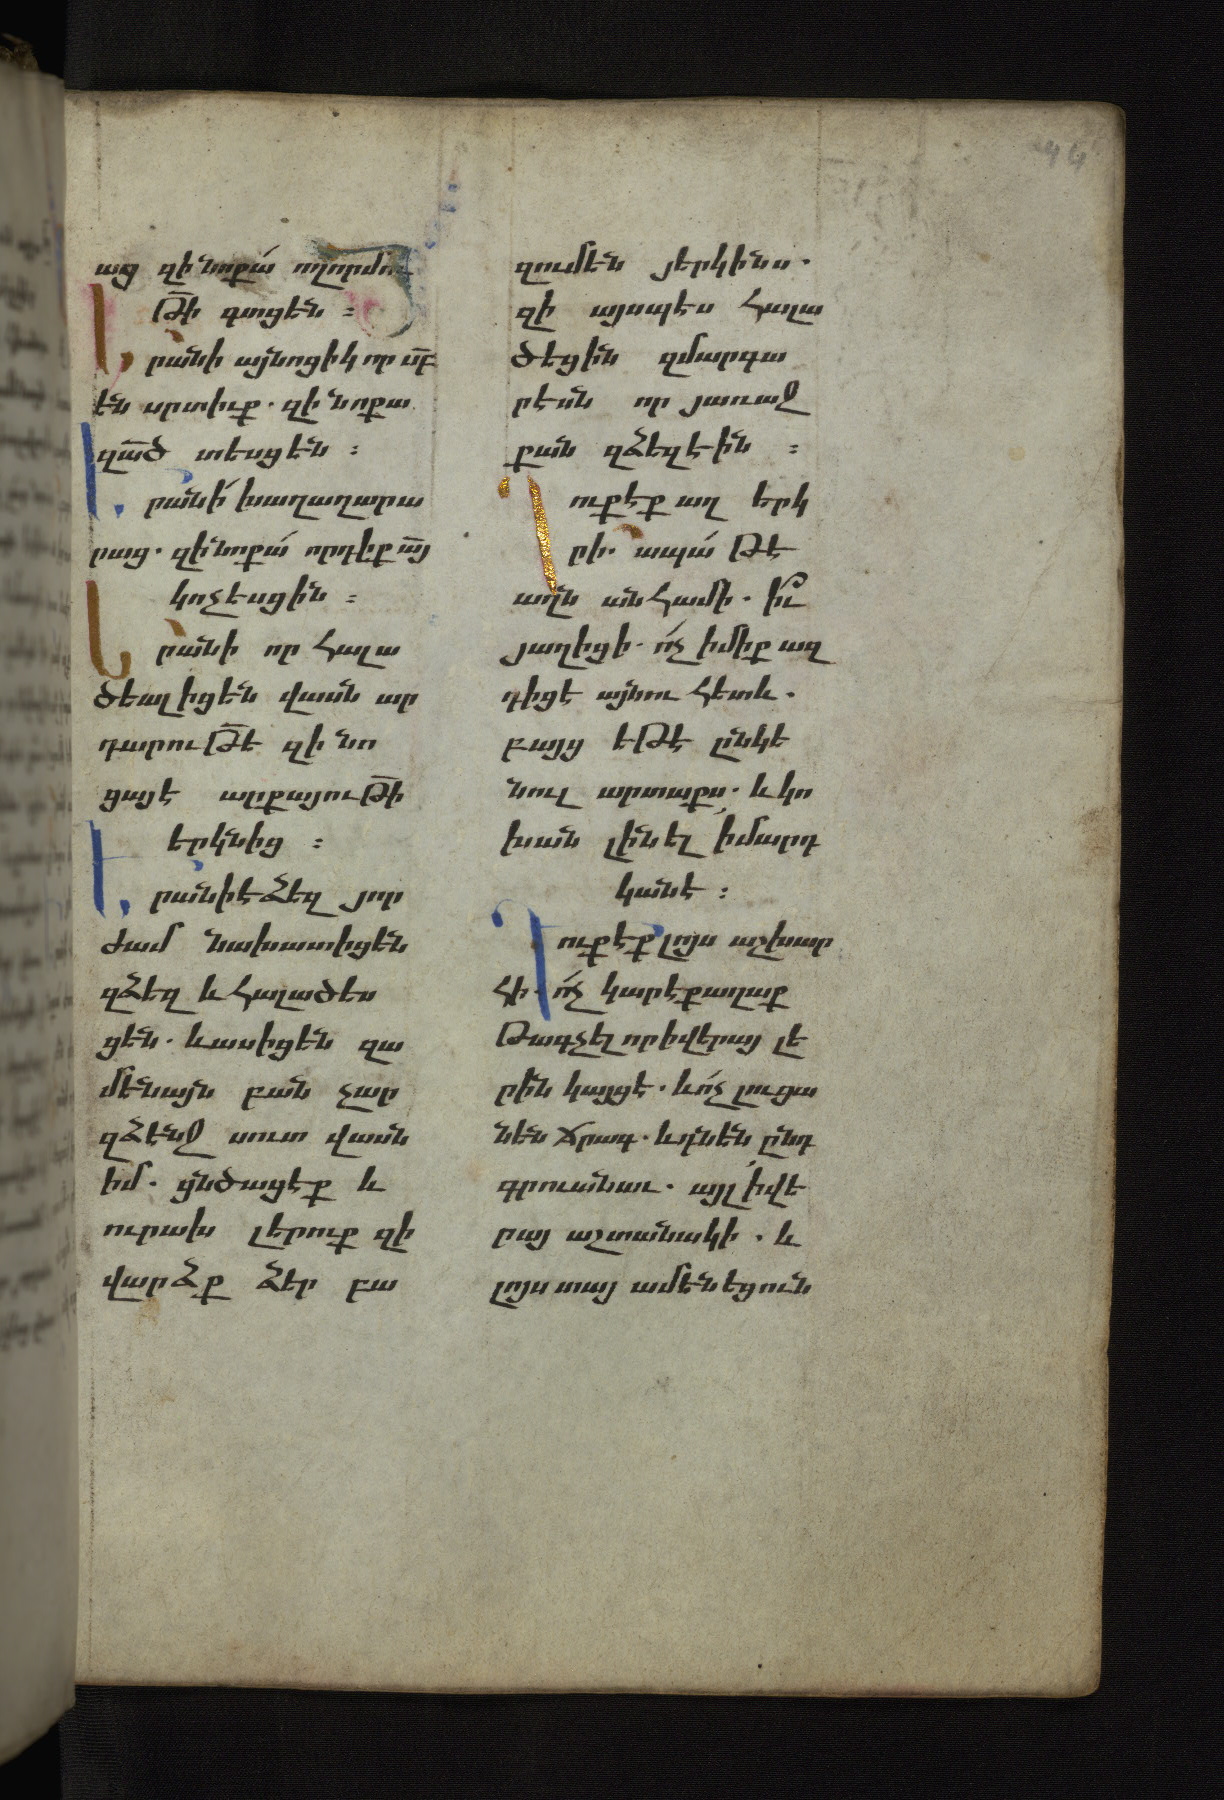 ած զի նոքա՛ ողորմու
թի գտցեն ։
Երանի այնոցիկ որ սբ
են սրտիւք . զի նոքա
զած տեսցեն ։
Երանի՛ խաղաղարա
րաց . զի նոքա՛ որդիք այ
կոչեսցին ։
Երանի որ հալա
ծեալ իցեն վասն ար
դարութե զի նո
ցայէ արքայութի
երկնից ։
Երանի է ձեզ յոր
ժամ նախատիցեն
զձեզ և հալածես
ցեն . և ասիցեն զա
մենայն բան չար
զձենջ սուտ վասն
իմ . ցնծացէք և
ուրախ լերուք զի
վարձք ձեր բա
զում են յերկինս .
զի այսպես հալա
ծեցին զմարգա
րէսն որ յառաջ
քան զձեզ էին ։
Դուք էք աղ երկ
րի . ապա՛ թէ
աղն անհամի . իւ
յաղիցի . ո՛չ իմիք ազ
դիցէ այնու հետև .
բայց եթէ ընկե
նուլ արտաքս . և կո
խան լինել ՛ի մարդ
կանէ ։
Դուք էք լոյս աշխար
հի . ո՛չ կարէ քաղաք
թագչել որ ի վերայ լե
րին կայցէ . և ո՛չ լուցա
նեն ճրագ . և դնեն ընդ
գրուանաւ . այլ ՛ի վե
րայ աշտանակի . և
լոյս տայ ամենեցուն